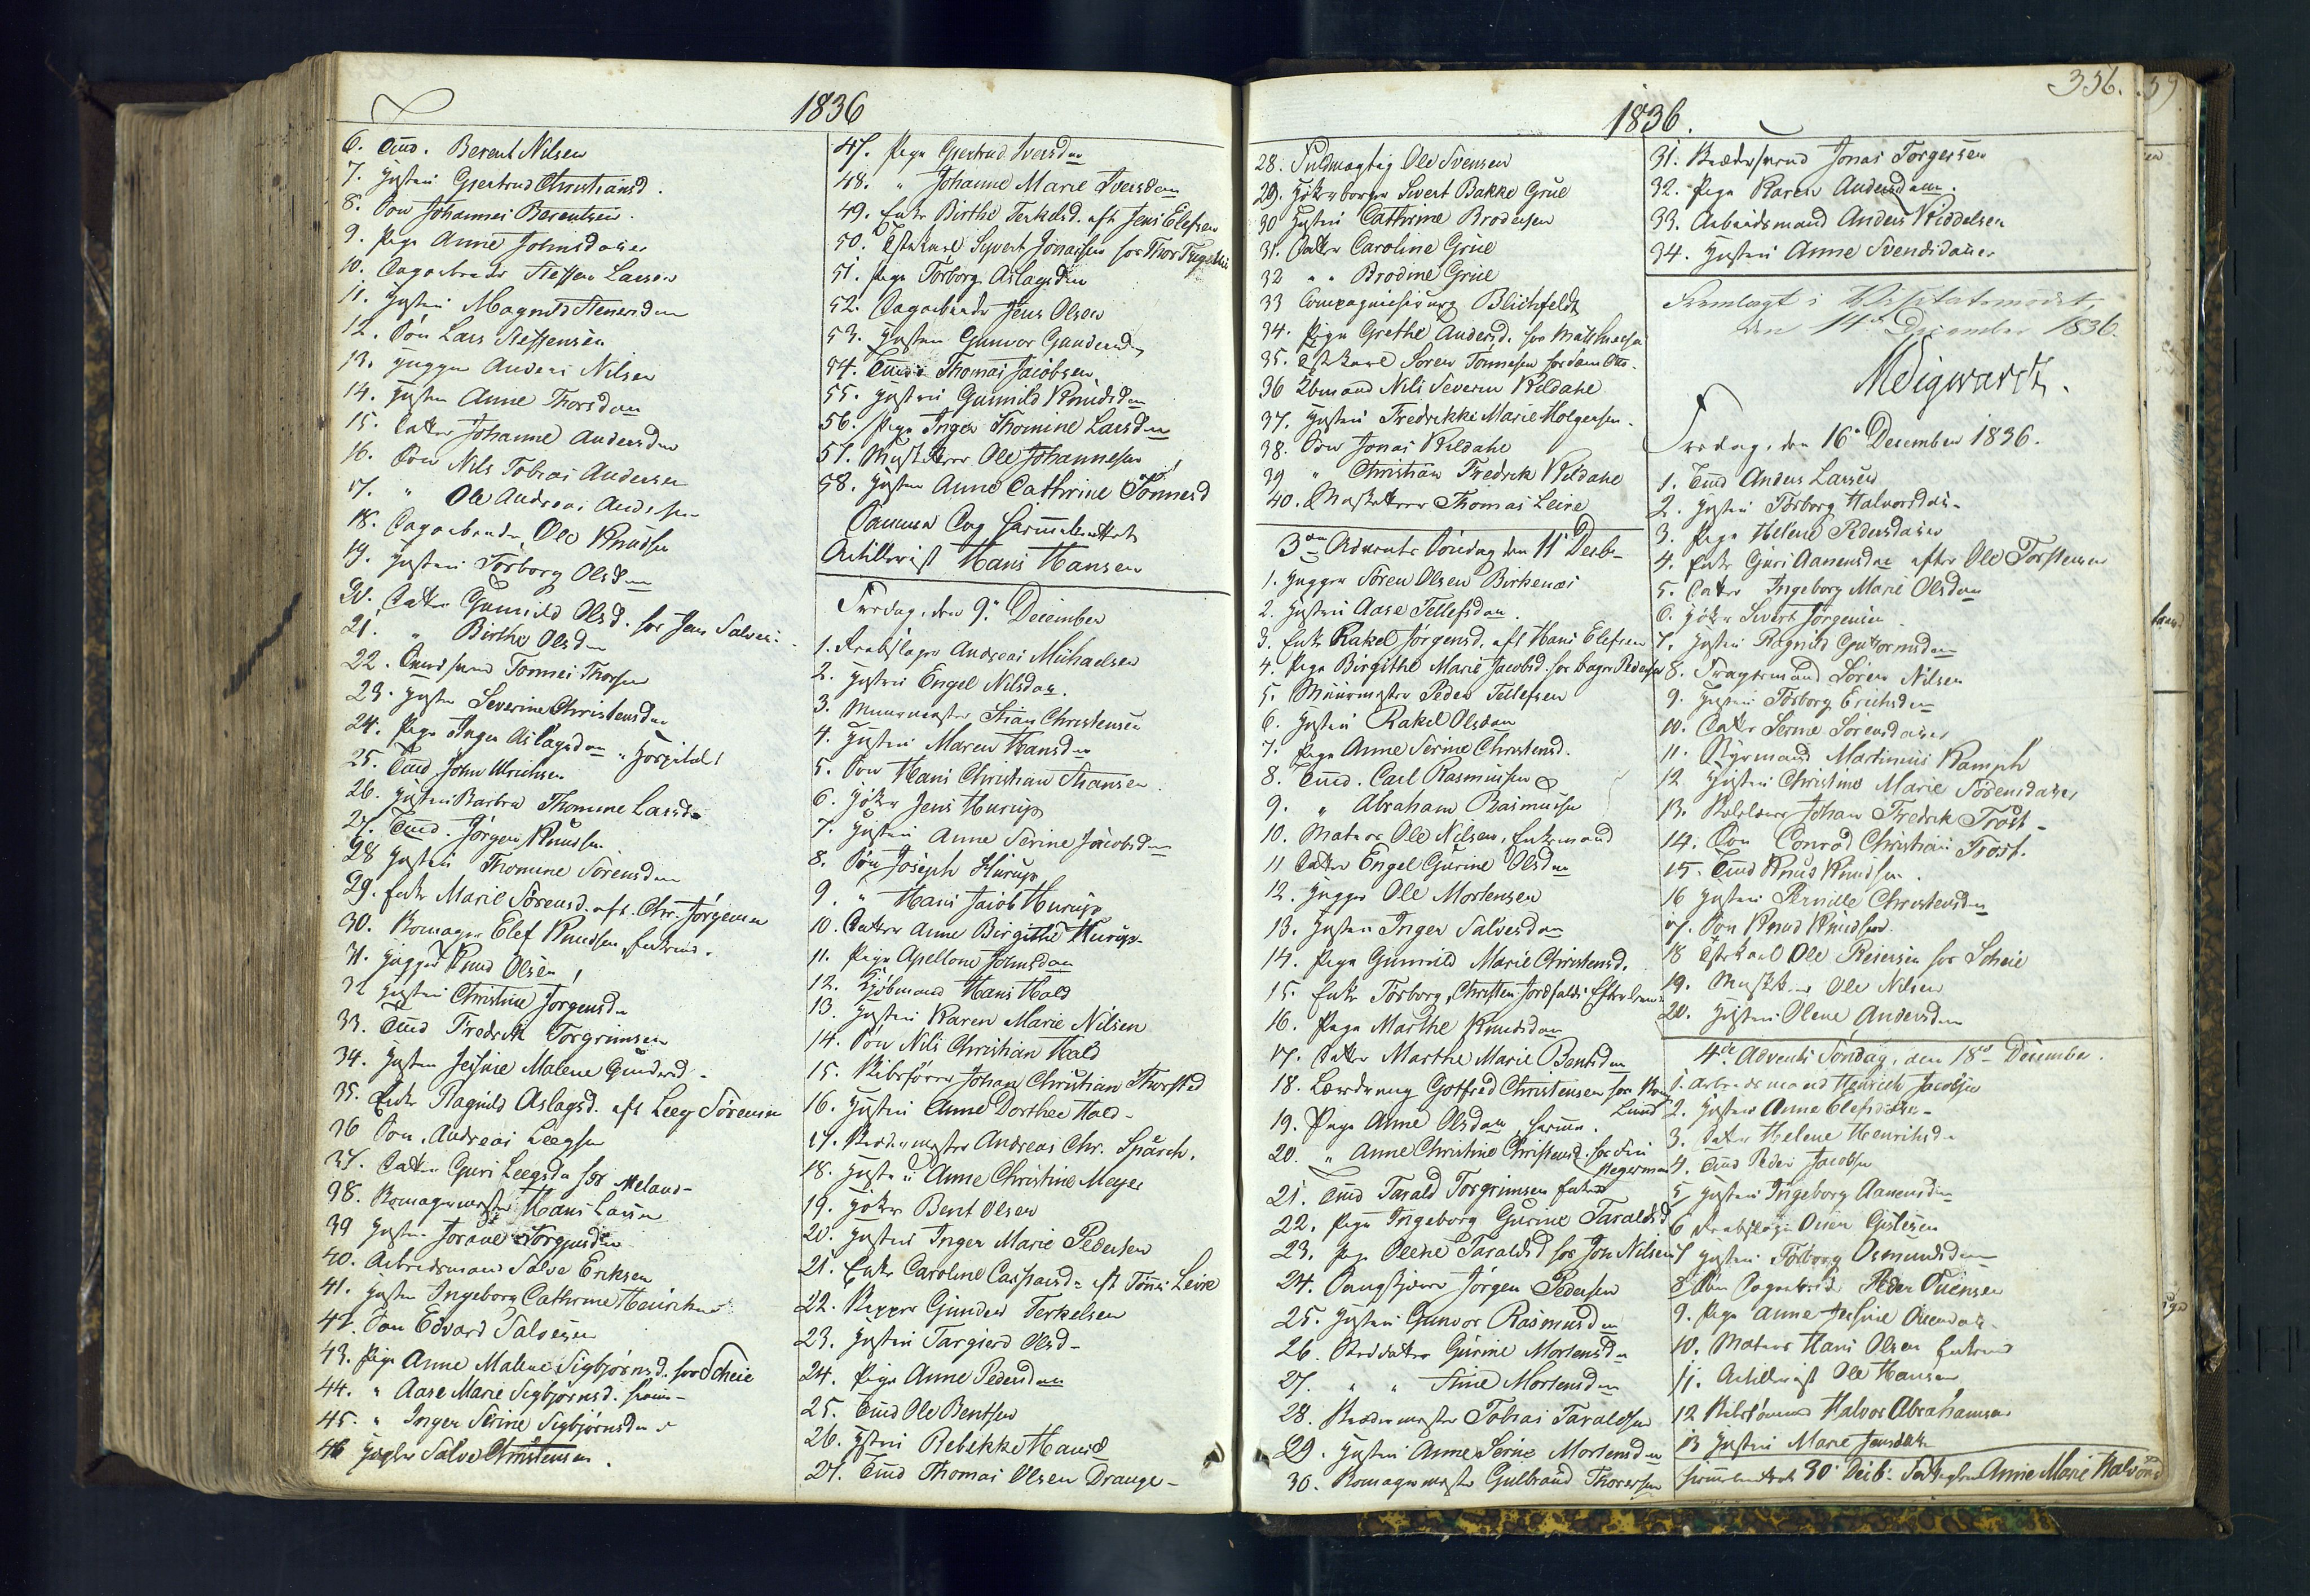 1836
6. Tmd. Berent Nilsen
7. Hustru Gjertrud Christiansd.
8. Søn Johannes Berentsen.
9. Pige Anne Johnsdatter
10. Dagarbeider Steffen Larsen
11. Hustru Magnild Stenersdatter
12. Søn Lars Steffensen
13. Anders Nilsen
14. Hustru Anne Thorsdatter
15. Datter Johanne Andersdatter
16. Søn Nils Tobias Andersen
17. " Ole Andreas Andersen
18. Dagarbeider Ole Knudsen
19. Hustru Torborg Olsdatter
20. Datter Gunnild Olsd. hos Jens
21. " Birthe Olsdatter
22. Tønnes Thorsen
23. Hustru Severine Christensdatter
24. Pige Inger Aslagsdatter, Hospitalet
25. Tmd John Ulrichsen
26. Hustru Barbra Thomine Larsd
27. Tmd. Jørgen Knudsen
28 Hustru Thomine Sørensdatter
29. Enke Marie Sørensd. eft. Chr. Jørgensen
30. Elef Knudsen, Enkemd.
31. Knud Olsen
32 Hustru Christine Jørgensd
33. Tmd Fredrik Torgrimsen
34. Hustru Malene Gundersd
35. Enke Ragnild Aslagsd. eft Leeg Sørensen
36 Søn Andreas Leegsen
37. Datter Guri Leegsd hos Meland
38. Hans Larsen
39 Hustru
40. Arbeidsmand Salve Eriksen
41. Hustru Ingeborg Cathrine
42. Søn Edvard Salvesen
43. Pige Anne Malene Sigbjørnsd. hos Scheie
44. " Aase Marie Sigbjørnsd.
45. " Inger Serine Sigbjørnsd
46 Salve Christensen.
47. Pige Gjertrud Iversdatter
48. " Johanne Marie Iversdatter
49. Enke Birthe Terkelsd. eft Jens Elefsen
50. Sivert Jonassen hos Thor
51. Pige Torborg Aslagsdatter
52. Dagarbeider Jens Olsen
53. Hustru Gunvor Gundersd
54. Tmd Thomas Jacobsen
55. Hustru Gunnild Knudsdatter
56. Pige Inger Thomine Larsdatter
57. Musketeer Ole Johannesen
58. Hustru Anne Cathrine Tønnesd
Samme Dag
Artillerist Hans Hansen
Fredag, den 9. December
1. Rebslager Andreas Michaelsen
2. Hustru Engel Nilsdatter.
3. Muurmester Stian Christensen
4. Hustru Maren Hansdatter
5. Søn Hans Christian Stiansen.
6. Høker Jens Hurup
7. Hustru Anne Serine Jacobsdatter
8. Søn Joseph Hurup
9. " Hans Jacob Hurup
10. Datter Anne Birgithe Hurup
11. Pige Apellone Johnsdatter
12. Kjøbmand Hans Hald
13. Hustru Karen Marie Nilsen
14. Søn Nils Christian Hald
15. Johan Christian Thorsted
16. Hustru Anne Dorthea Hald
17. Andreas Chr. Spärch.
18. Hustru Anne Christine Meyer
19. Høker Bent Olsen
20. Hustru Inger Marie Pedersen
21. Enke Caroline Caspersd. eft Tønnes Leire
22. Gunder Terkelsen
23. Hustru Targierd Olsd
24. Pige Anne Pedersdatter
25. Tmd Ole Bentsen
26. Hustru Rebekke Hansd
27. Tmd Thomas Olsen Drange
356.
1836.
28. Fuldmægtig Ole Svensen
29. Høker borger Sivert Bakke Grue
30 Hustru Cathrine Brodersen
31. Datter Caroline Grue
32 " " Brodine Grue
33 Compagniechirurg Blichfeldt
34. Pige Grethe Andersd. hos
35. Søren Tønnesen
36 Kbmand Nils Severin Kildahl
37. Hustru Fredrikke Marie Holgersen.
38. Søn Jonas Kildahl
39 " Christian Fredrik Kildahl
40. Musketeer Thomas Leire
3die Advents Søndag den 11 Decbr
1. Søren Olsen Birkenæs
2. Hustru Aase Tellefsdatter.
3. Enke Rakel Jørgensd. eft Hans Elefsen
4. Pige Birgithe Marie Jacobsd. hos Bager Pedersen
5. Muurmester Peder Tellefsen
6. Hustru Rakel Olsdatter
7. Pige Anne Serine Christensd.
8. Tmd. Carl Rasmussen
9. " Abraham Rasmussen
10. Matros Ole Nilsen, Enkemand
11 Datter Engel Gurine Olsdatter
12. Ole Mortensen
13. Hustru Inger Salvesdatter
14. Pige Gunnild Marie Christensd.
15. Enke Torborg, Christen Jordfalds
16. Pige Marthe Knudsdatter
17. Datter Marthe Marie Bentsdatter
18. Læredreng Gotfred Christensen hos Lund
19. Pige Anne Olsdatter
20. " Anne Christine Christensd. hos
21. Tmd Tarald Torgrimsen Enkemd
22. Pige Ingeborg Gurine Taraldsd
23. Pige Olene Taraldsd hos Jon Nilsen
24. Jørgen Pedersen
25. Hustru Gunvor Rasmusdatter
26. Gurine Mortensd
27. " " Stine Mortensdatter
28. Tobias Taraldsen
29. Hustru Anne Serine Mortensdatter
30. Gulbrand Thoresen
31. Jonas Torgersen
32. Pige Karen Andersdatter.
33. Arbeidsmand Anders Kiddelsen
34. Hustru Anne Svendsdatter
Fremlagt i Visitatsmødet,
den 14de December 1836.
Fredag, den 16 December 1836.
1. Tmd Anders Larsen
2. Hustru Torborg Halvorsdatter
3. Pige Helene Pedersdatter
4. Enke Guri Aanensdatter efter Ole Torstensen
5. Datter Ingeborg Marie Olsdatter
6. Høker Sivert Jørgensen
7. Hustru Ragnild Guttormsdatter
8. Dragermand Søren Nilsen
9. Hustru Torborg Erichsdatter
10. Datter Serine Sørensdatter
11. Styrmand Martinius Kamph
12 Hustru Christine Marie Sørensdatter
13. Johan Fredrik Trost
14. Søn Conrad Christian Trost.
15. Tmd Knud Knudsen.
16 Hustru Pernille Christensdatter
17. Søn Knud Knudsen.
18 Ole Reiersen hos Scheie
19. Musketeer Ole Nilsen
20. Hustru Olene Andersdatter
4de Advents Søndag, den 18de December.
1. Arbeidsmand Henrich Jacobsen
2. Hustru Anne Elefsdatter
3. Datter Helene Henriksd
4. Tmd Peder Jacobsen
5 Hustru Ingeborg Aanensdatter
6 Rebslager Osuen Gjulesen
7 Hustru Torborg Osmundsdatter
8 Søn Dagarbeider Peder Osuensen
9. Pige Anne
10. Matros Hans Olsen Enkemd
11. Artillerist Ole Hansen
12 Halvor Abrahamsen
13 Hustru Marie Jensdatter
30 Decb. Anne Marie Halvorsd